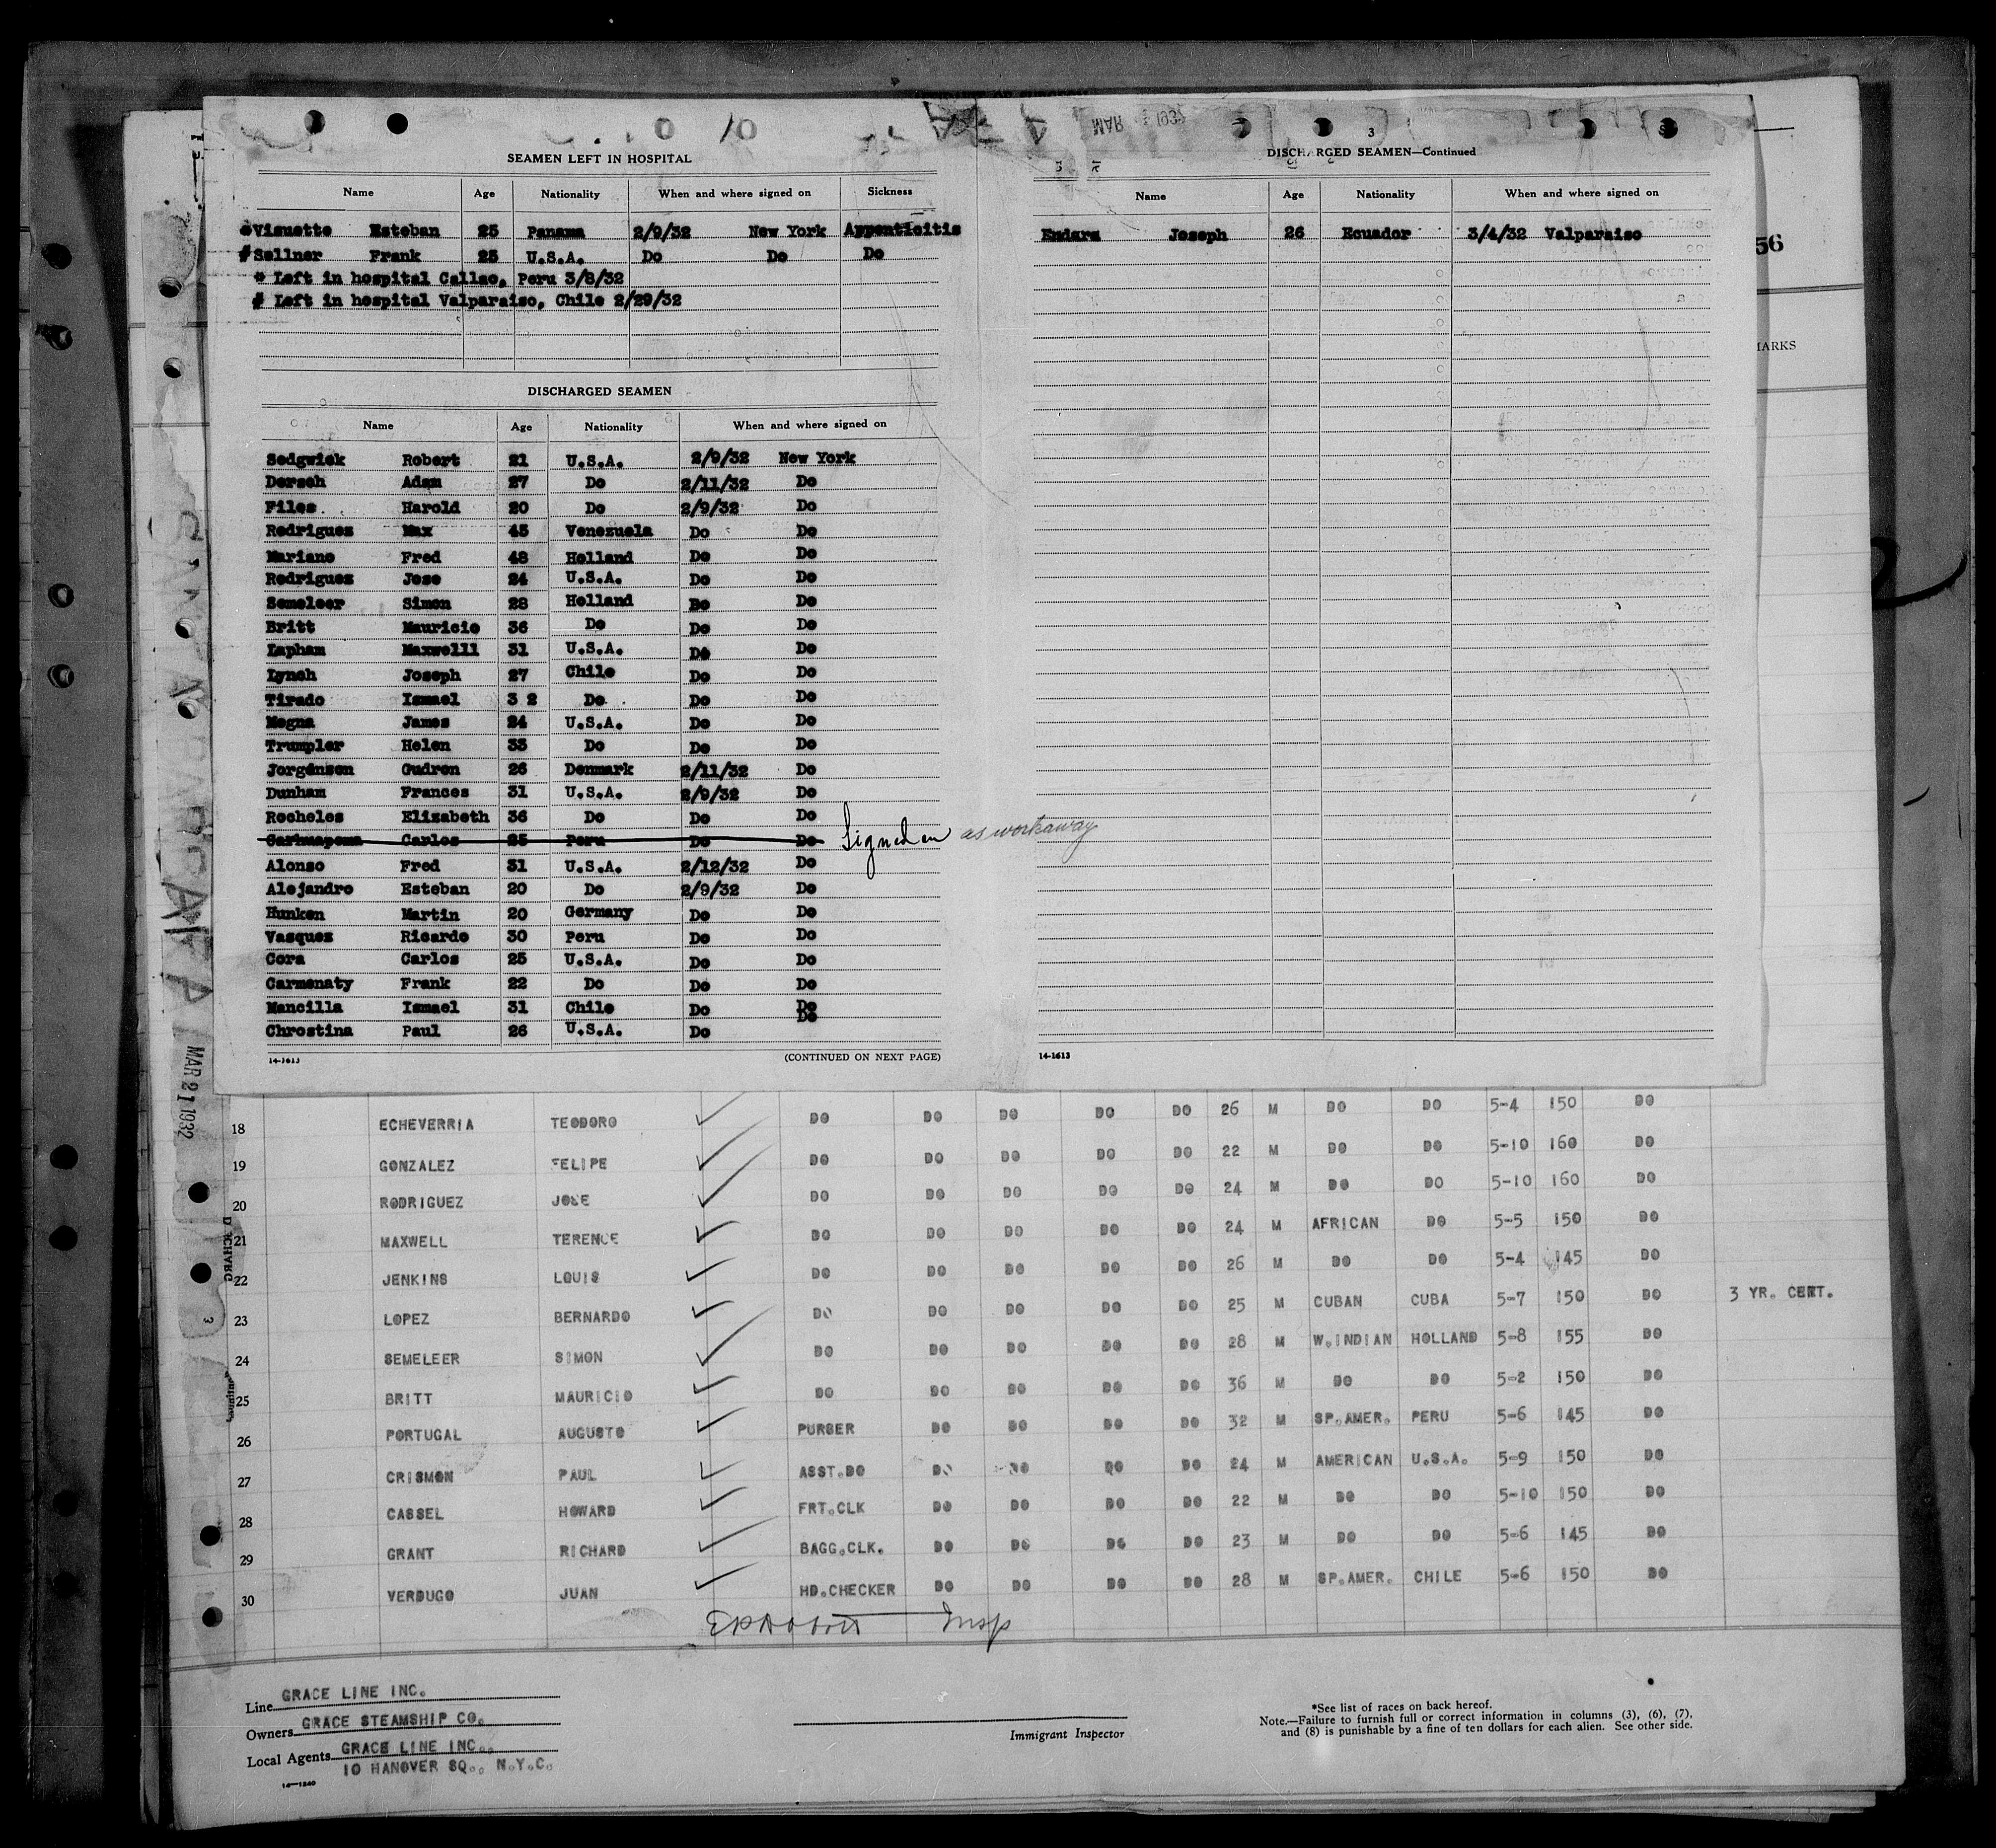 MAR 1932
SEAMEN LEFT IN HOSPITAL
Name Age Nationality When and where signed on Sickness
*Visuette Esteban 25 Panama 2/9/32 New York Appenticitis
#Sellner Frank 25 U.S.A. Do Do Do
* Left in hospital Callao, Peru 3/8/32
# Left in hospital Valparaiso, Chile 2/29/32
DISCHARGED SEAMEN
Name Age Nationality When and where signed on
Sedgwick Robert 21 U.S.A. 2/9/32 New York
Dersch Adam 27 Do 2/11/32 Do
Files Harold 20 Do 2/9/32 Do
Rodriguez Max 45 Venezuela Do Do
Mariano Fred 48 Holland Do Do
Rodriguez Jose 24 U.S.A. Do Do
Semeleer Simon 28 Holland Do Do
Britt Mauricio 36 Do Do Do
Lapham Maxwelll 31 U.S.A. Do Do
Lynch Joseph 27 Chile Do Do
Tirado Ismael 3 2 Do Do Do
Megna James 24 U.S.A. Do Do
Trumpler Helen 33 Do Do Do
Jorgensen Gudron 26 Denmark 2/11/32 Do
Dunham Frances 31 U.S.A. 2/9/32 Do
Recheles Elizabeth 36 Do Do Do
Carhuapoma Carlos 25 Peru Do Do Signed on as workaway
Alonso Fred 31 U.S.A. 2/12/32 Do
Alejandro Esteban 20 Do 2/9/32 Do
Hunken Martin 20 Germany Do Do
Vasquez Ricardo 30 Peru Do Do
Cora Carlos 25 U.S.A. Do Do
Carmenaty Frank 22 Do Do Do
Mancilla Ismael 31 Chile Do Do
Chrostina Paul 26 U.S.A. Do Do
14-1613 (CONTINUED ON NEXT PAGE)
3
DISCHARGED SEAMEN—Continued
Name Age Nationality When and where signed on
Endara Joseph 26 Ecuador 3/4/32 Valparaiso
14-1613
56
MARKS
MAR 21 1932
18 ECHEVERRIA TEODORO DO DO DO DO DO 26 M DO DO 5-4 150 DO
19 GONZALEZ FELIPE DO DO DO DO DO 22 M DO DO 5-10 160 DO
20 RODRIGUEZ JOSE DO DO DO DO DO 24 M DO DO 5-10 160 DO
21 MAXWELL TERENCE DO DO DO DO DO 24 M AFRICAN DO 5-5 150 DO
22 JENKINS LOUIS DO DO DO DO DO 26 M DO DO 5-4 145 DO
23 LOPEZ BERNARDO DO DO DO DO DO 25 M CUBAN CUBA 5-7 150 DO 3 YR. CERT.
24 SEMELEER SIMON DO DO DO DO DO 28 M W.INDIAN HOLLAND 5-8 155 DO
25 BRITT MAURICIO DO DO DO DO DO 36 M DO DO 5-2 150 DO
26 PORTUGAL AUGUSTO PURSER DO DO DO DO 32 M SP.AMER. PERU 5-6 145 DO
27 CRISMON PAUL ASST.DO DO DO DO DO 24 M AMERICAN U.S.A. 5-9 150 DO
28 CASSEL HOWARD FRT.CLK DO DO DO DO 22 M DO DO 5-10 150 DO
29 GRANT RICHARD BAGG.CLK. DO DO DO DO 23 M DO DO 5-6 145 DO
30 VERDUGO JUAN HD.CHECKER DO DO DO DO 28 M SP.AMER. CHILE 5-6 150 DO
Insp
Line GRACE LINE INC.
Owners GRACE STEAMSHIP CO.
Local Agents GRACE LINE INC.
10 HANOVER SQ., N.Y.C.
14—1240
Immigrant Inspector
*See list of races on back hereof.
Note.—Failure to furnish full or correct information in columns (3), (6), (7),
and (8) is punishable by a fine of ten dollars for each alien. See other side.